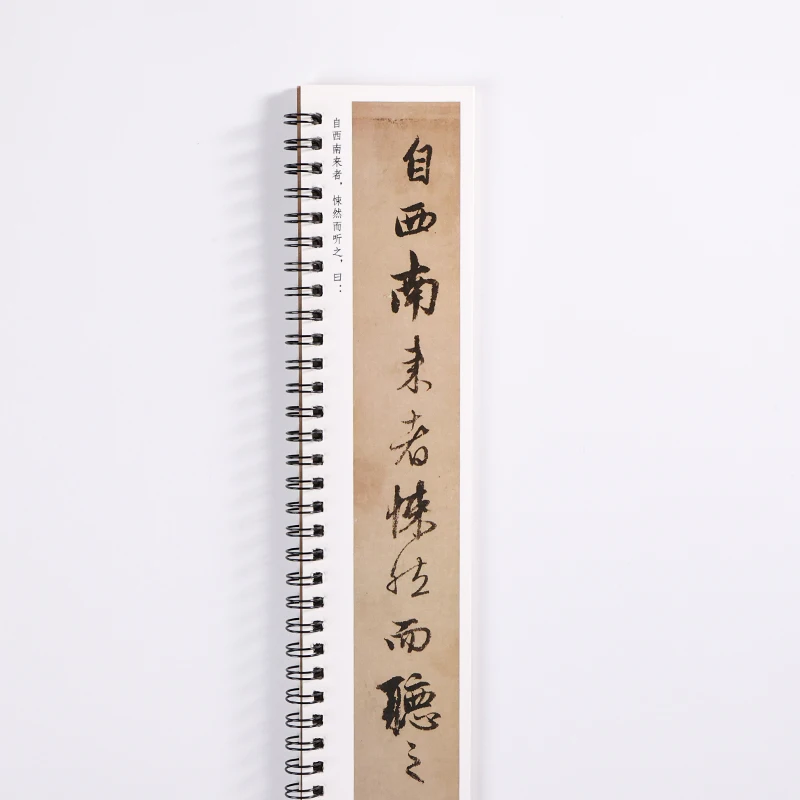 自西南来者，悚然而听之，曰：
自西南来者悚然而聽之